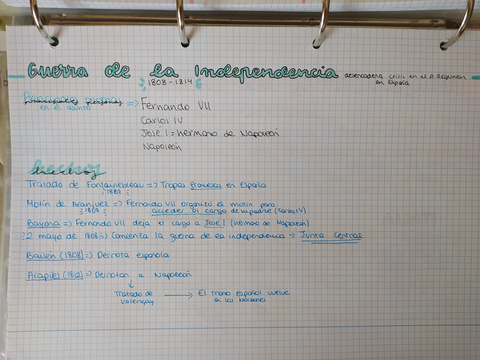 Guerra de la Independencia desencadena crisis en el A. Régimen
en España
1808 - 1814
Principales personas
en el ámbito
=> Fernando VII
Carlos IV
Jose I = hermano de Napoleón
Napoleón
hechos
Tratado de Fontainebleau => Tropas francesas en España
1807
Motín de Aranjuez => Fernando VII organizó el motín para
1808 acceder al cargo de su padre (Carlos IV)
Bayona => Fernando VII deja el cargo a Jose I (hermano de Napoleón)
2 mayo de 1808 => Comienza la guerra de la independencia -> Junta Central
Bailén (1808) => Derrota española
Arapiles (1812) => Derrotan a Napoleón
Tratado de
Valençay
-> El trono español vuelve
a los borbones